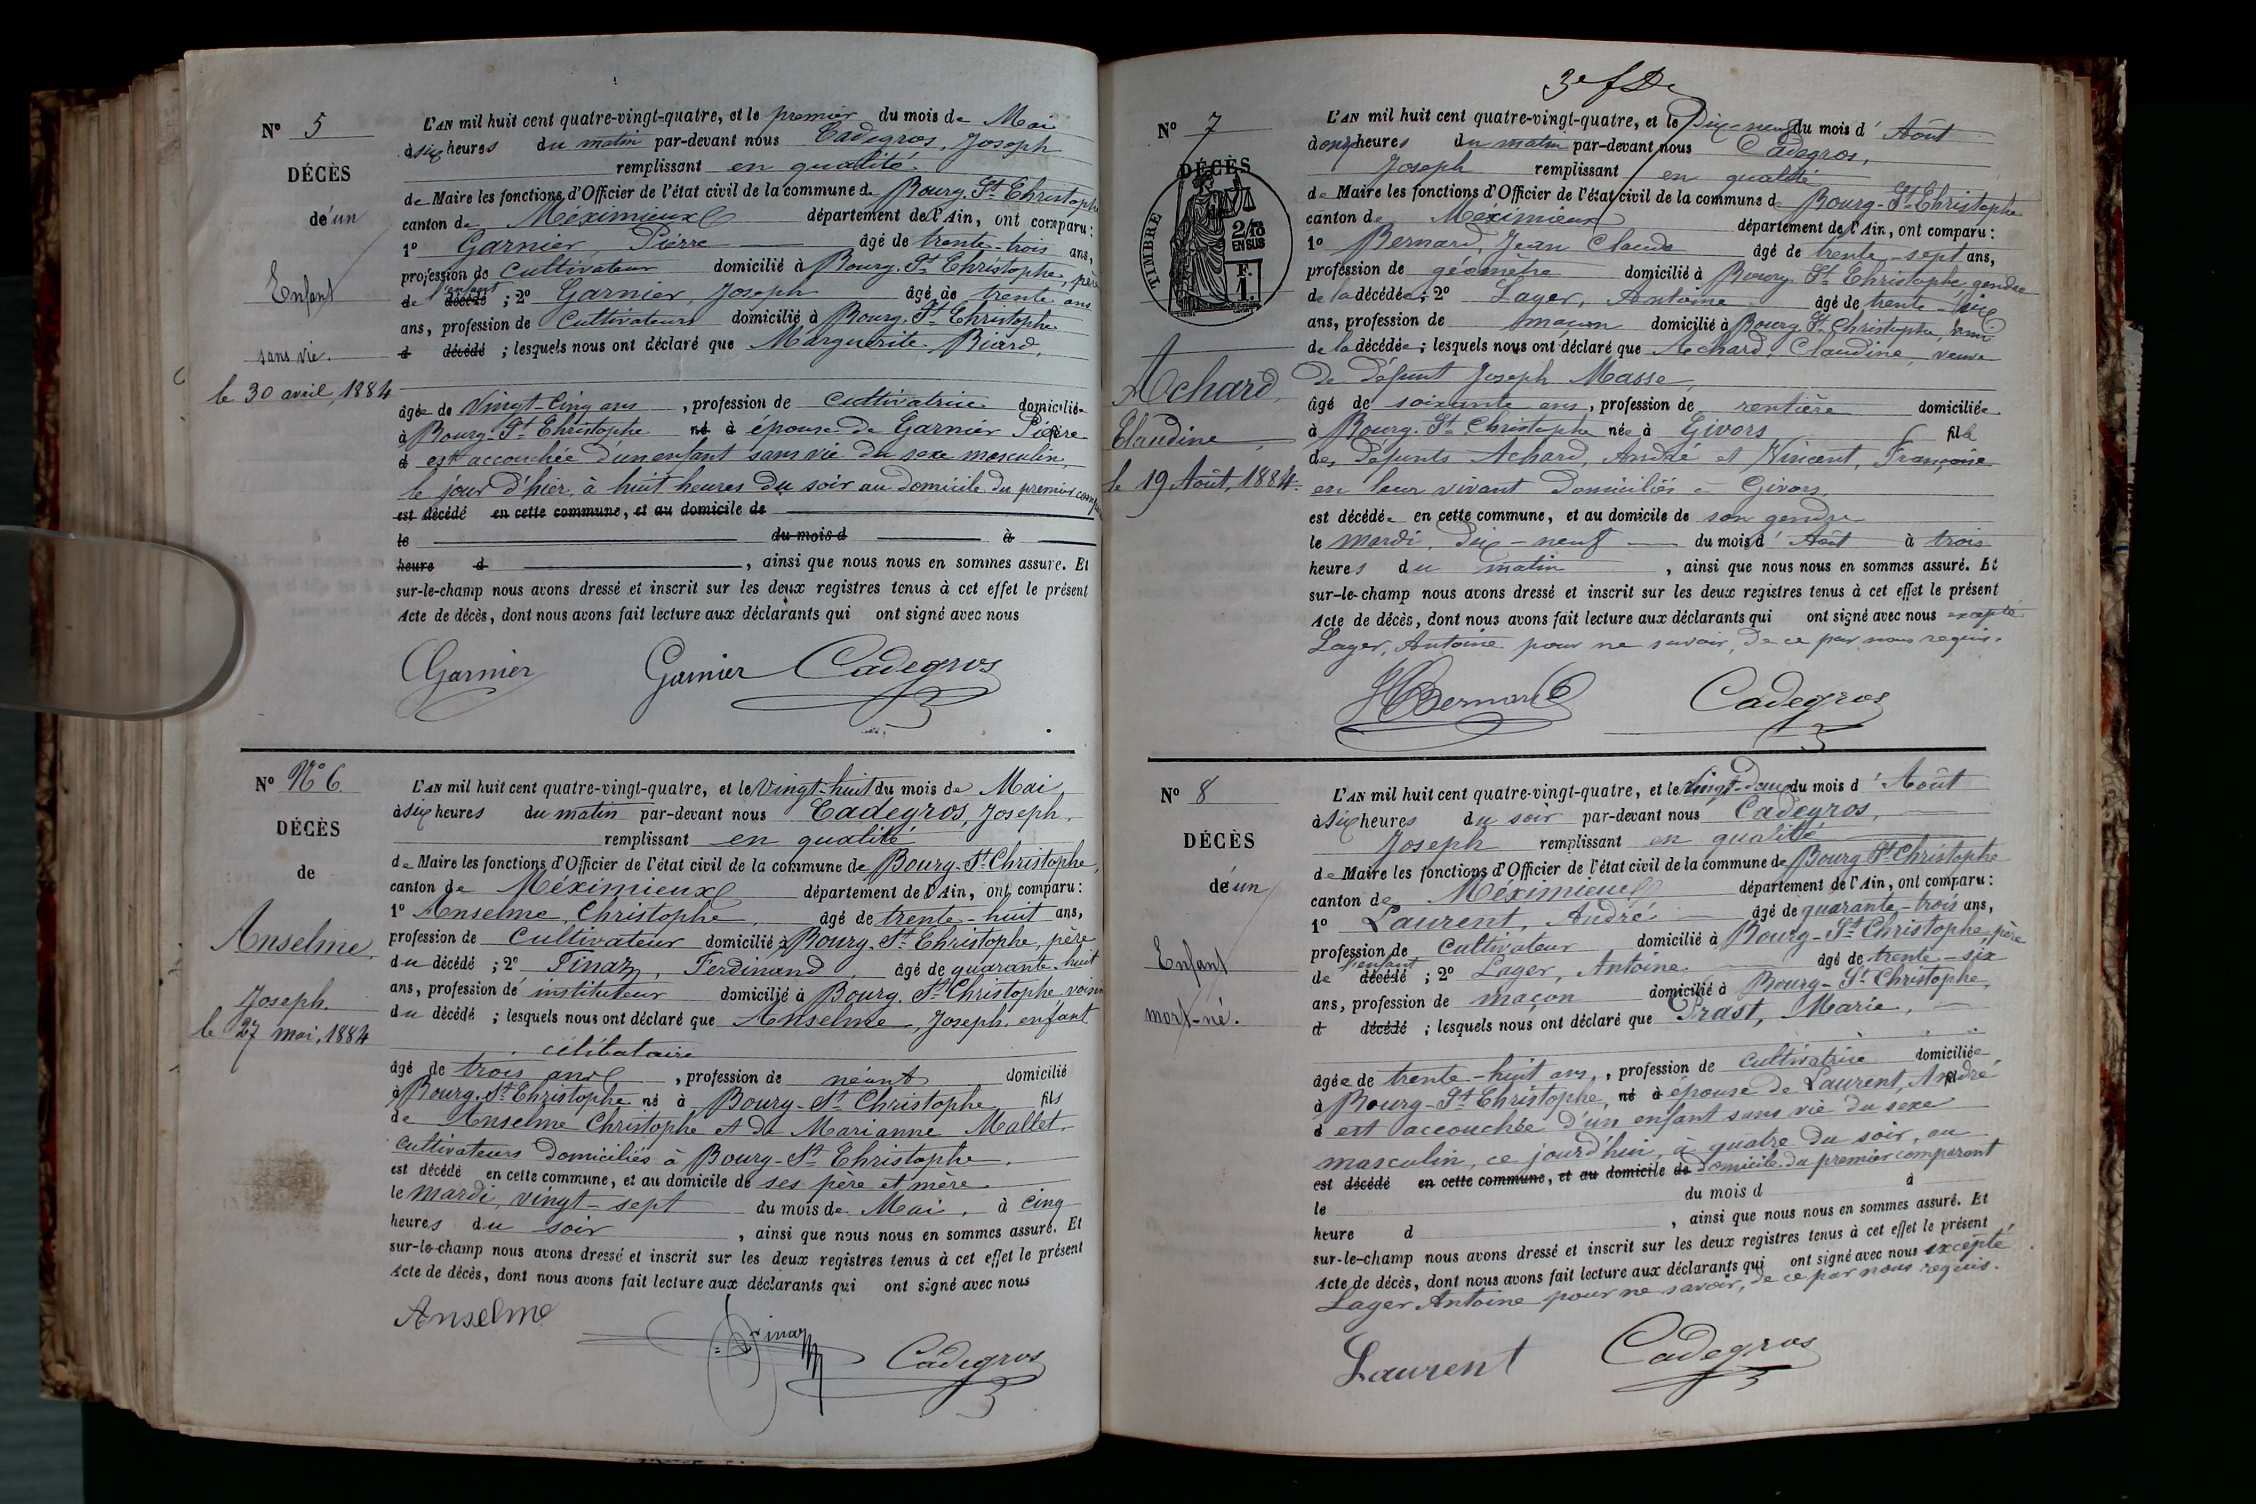 N° 5
DÉCÈS
de d'un
Enfant
sans vie.
le 30 avril, 1884
L'AN mil huit cent quatre-vingt-quatre, et le premier du mois de Mai
à six heures du matin par-devant nous Cadegros, Joseph
remplissant en qualité
de Maire les fonctions d'Officier de l'état civil de la commune de Bourg-St-Christophe
canton de Méximieux département de l'Ain, ont comparu :
1° Garnier, Pierre âgé de trente-trois ans,
profession de cultivateur domicilié à Bourg-St-Christophe, père
de l'enfant décédé ; 2° Garnier, Joseph âgé de trente ans
ans, profession de Cultivateur domicilié à Bourg-St-Christophe
d décédé ; lesquels nous ont déclaré que Marguerite
âgée de vingt-cinq ans, profession de cultivatrice domiciliée
à Bourg-St-Christophe né à épouse de Garnier Pierre
d est accouchée d'un enfant sans vie du sexe masculin,
le jour d'hier, à huit heures du soir au domicile du premier comp
est décédé en cette commune, et au domicile de
le du mois d à
heure d , ainsi que nous nous en sommes assuré. Et
sur-le-champ nous avons dressé et inscrit sur les deux registres tenus à cet effet le présent
Acte de décès, dont nous avons fait lecture aux déclarants qui ont signé avec nous
Garnier Garnier Cadegros
N° N° 6
DÉCÈS
de
Anselme,
Joseph.
le 27 mai, 1884
L'AN mil huit cent quatre-vingt-quatre, et le vingt-huit du mois de Mai
à six heures du matin par-devant nous Cadegros, Joseph,
remplissant en qualité
de Maire les fonctions d'Officier de l'état civil de la commune de Bourg-St-Christophe,
canton de Méximieux département de l'Ain, ont comparu :
1° Anselme, Christophe, âgé de trente-huit ans,
profession de cultivateur domicilié à Bourg-St-Christophe, père
du décédé ; 2° Tinaz, Ferdinand, âgé de quarante-huit
ans, profession de instituteur domicilié à Bourg-St-Christophe voisin
du décédé ; lesquels nous ont déclaré que Anselme, Joseph, enfant
célibataire
âgé de trois ans, profession de néant domicilié
à Bourg-St-Christophe né à Bourg-St-Christophe fils
de Anselme Christophe et de Marianne Mallet,
cultivateurs domiciliés à Bourg-St-Christophe,
est décédé en cette commune, et au domicile de ses père et mère
le mardi, vingt-sept du mois de Mai, à cinq
heures du soir , ainsi que nous nous en sommes assuré. Et
sur-le-champ nous avons dressé et inscrit sur les deux registres tenus à cet effet le présent
Acte de décès, dont nous avons fait lecture aux déclarants qui ont signé avec nous
Anselme Tinaz Cadegros
N° 7
DÉCÈS
TIMBRE
2/10
EN SUS
F.
1.
Achard,
Claudine,
le 19 Août, 1884.
L'AN mil huit cent quatre-vingt-quatre, et le Dix-neuf du mois d'Août
à onze heures du matin par-devant nous Cadegros,
Joseph remplissant en qualité
de Maire les fonctions d'Officier de l'état civil de la commune de Bourg-St-Christophe
canton de Méximieux département de l'Ain, ont comparu :
1° Bernard, Jean Claude âgé de trente-sept ans,
profession de géomètre domicilié à Bourg-St-Christophe gendre
de la décédée ; 2° Lager, Antoine âgé de trente-six
ans, profession de maçon domicilié à Bourg-St-Christophe, ami
de la décédée ; lesquels nous ont déclaré que Achard, Claudine, veuve
de défunt Joseph Masse,
âgé de soixante ans, profession de rentière domiciliée
à Bourg-St-Christophe née à Givors fille
des défunts Achard, André et Vincent, Françoise
en leur vivant domiciliés à Givors.
est décédée en cette commune, et au domicile de son gendre
le mardi, dix-neuf du mois d'Août à trois
heures du matin , ainsi que nous nous en sommes assuré. Et
sur-le-champ nous avons dressé et inscrit sur les deux registres tenus à cet effet le présent
Acte de décès, dont nous avons fait lecture aux déclarants qui ont signé avec nous excepté
Lager, Antoine pour ne savoir, de ce par nous requis.
Bernard Cadegros
N° 8
DÉCÈS
de d'un
Enfant
mort-né.
L'AN mil huit cent quatre-vingt-quatre, et le vingt-deux du mois d'Août
à six heures du soir par-devant nous Cadegros,
Joseph remplissant en qualité
de Maire les fonctions d'Officier de l'état civil de la commune de Bourg-St-Christophe
canton de Méximieux département de l'Ain, ont comparu :
1° Laurent, André âgé de quarante-trois ans,
profession de cultivateur domicilié à Bourg-St-Christophe, père
de l'enfant décédé ; 2° Lager, Antoine âgé de trente-six
ans, profession de maçon domicilié à Bourg-St-Christophe,
d décédé ; lesquels nous ont déclaré que Prast, Marie,
âgée de trente-huit ans, profession de cultivatrice domiciliée
à Bourg-St-Christophe, né à épouse de Laurent, André fil
d est accouchée d'un enfant sans vie du sexe
masculin, ce jourd'hui, à quatre du soir, au
est décédé en cette commune, et au domicile de domicile du premier comparant
le du mois d à
heure d , ainsi que nous nous en sommes assuré. Et
sur-le-champ nous avons dressé et inscrit sur les deux registres tenus à cet effet le présent
Acte de décès, dont nous avons fait lecture aux déclarants qui ont signé avec nous excepté
Lager Antoine pour ne savoir, de ce par nous requis.
Laurent Cadegros